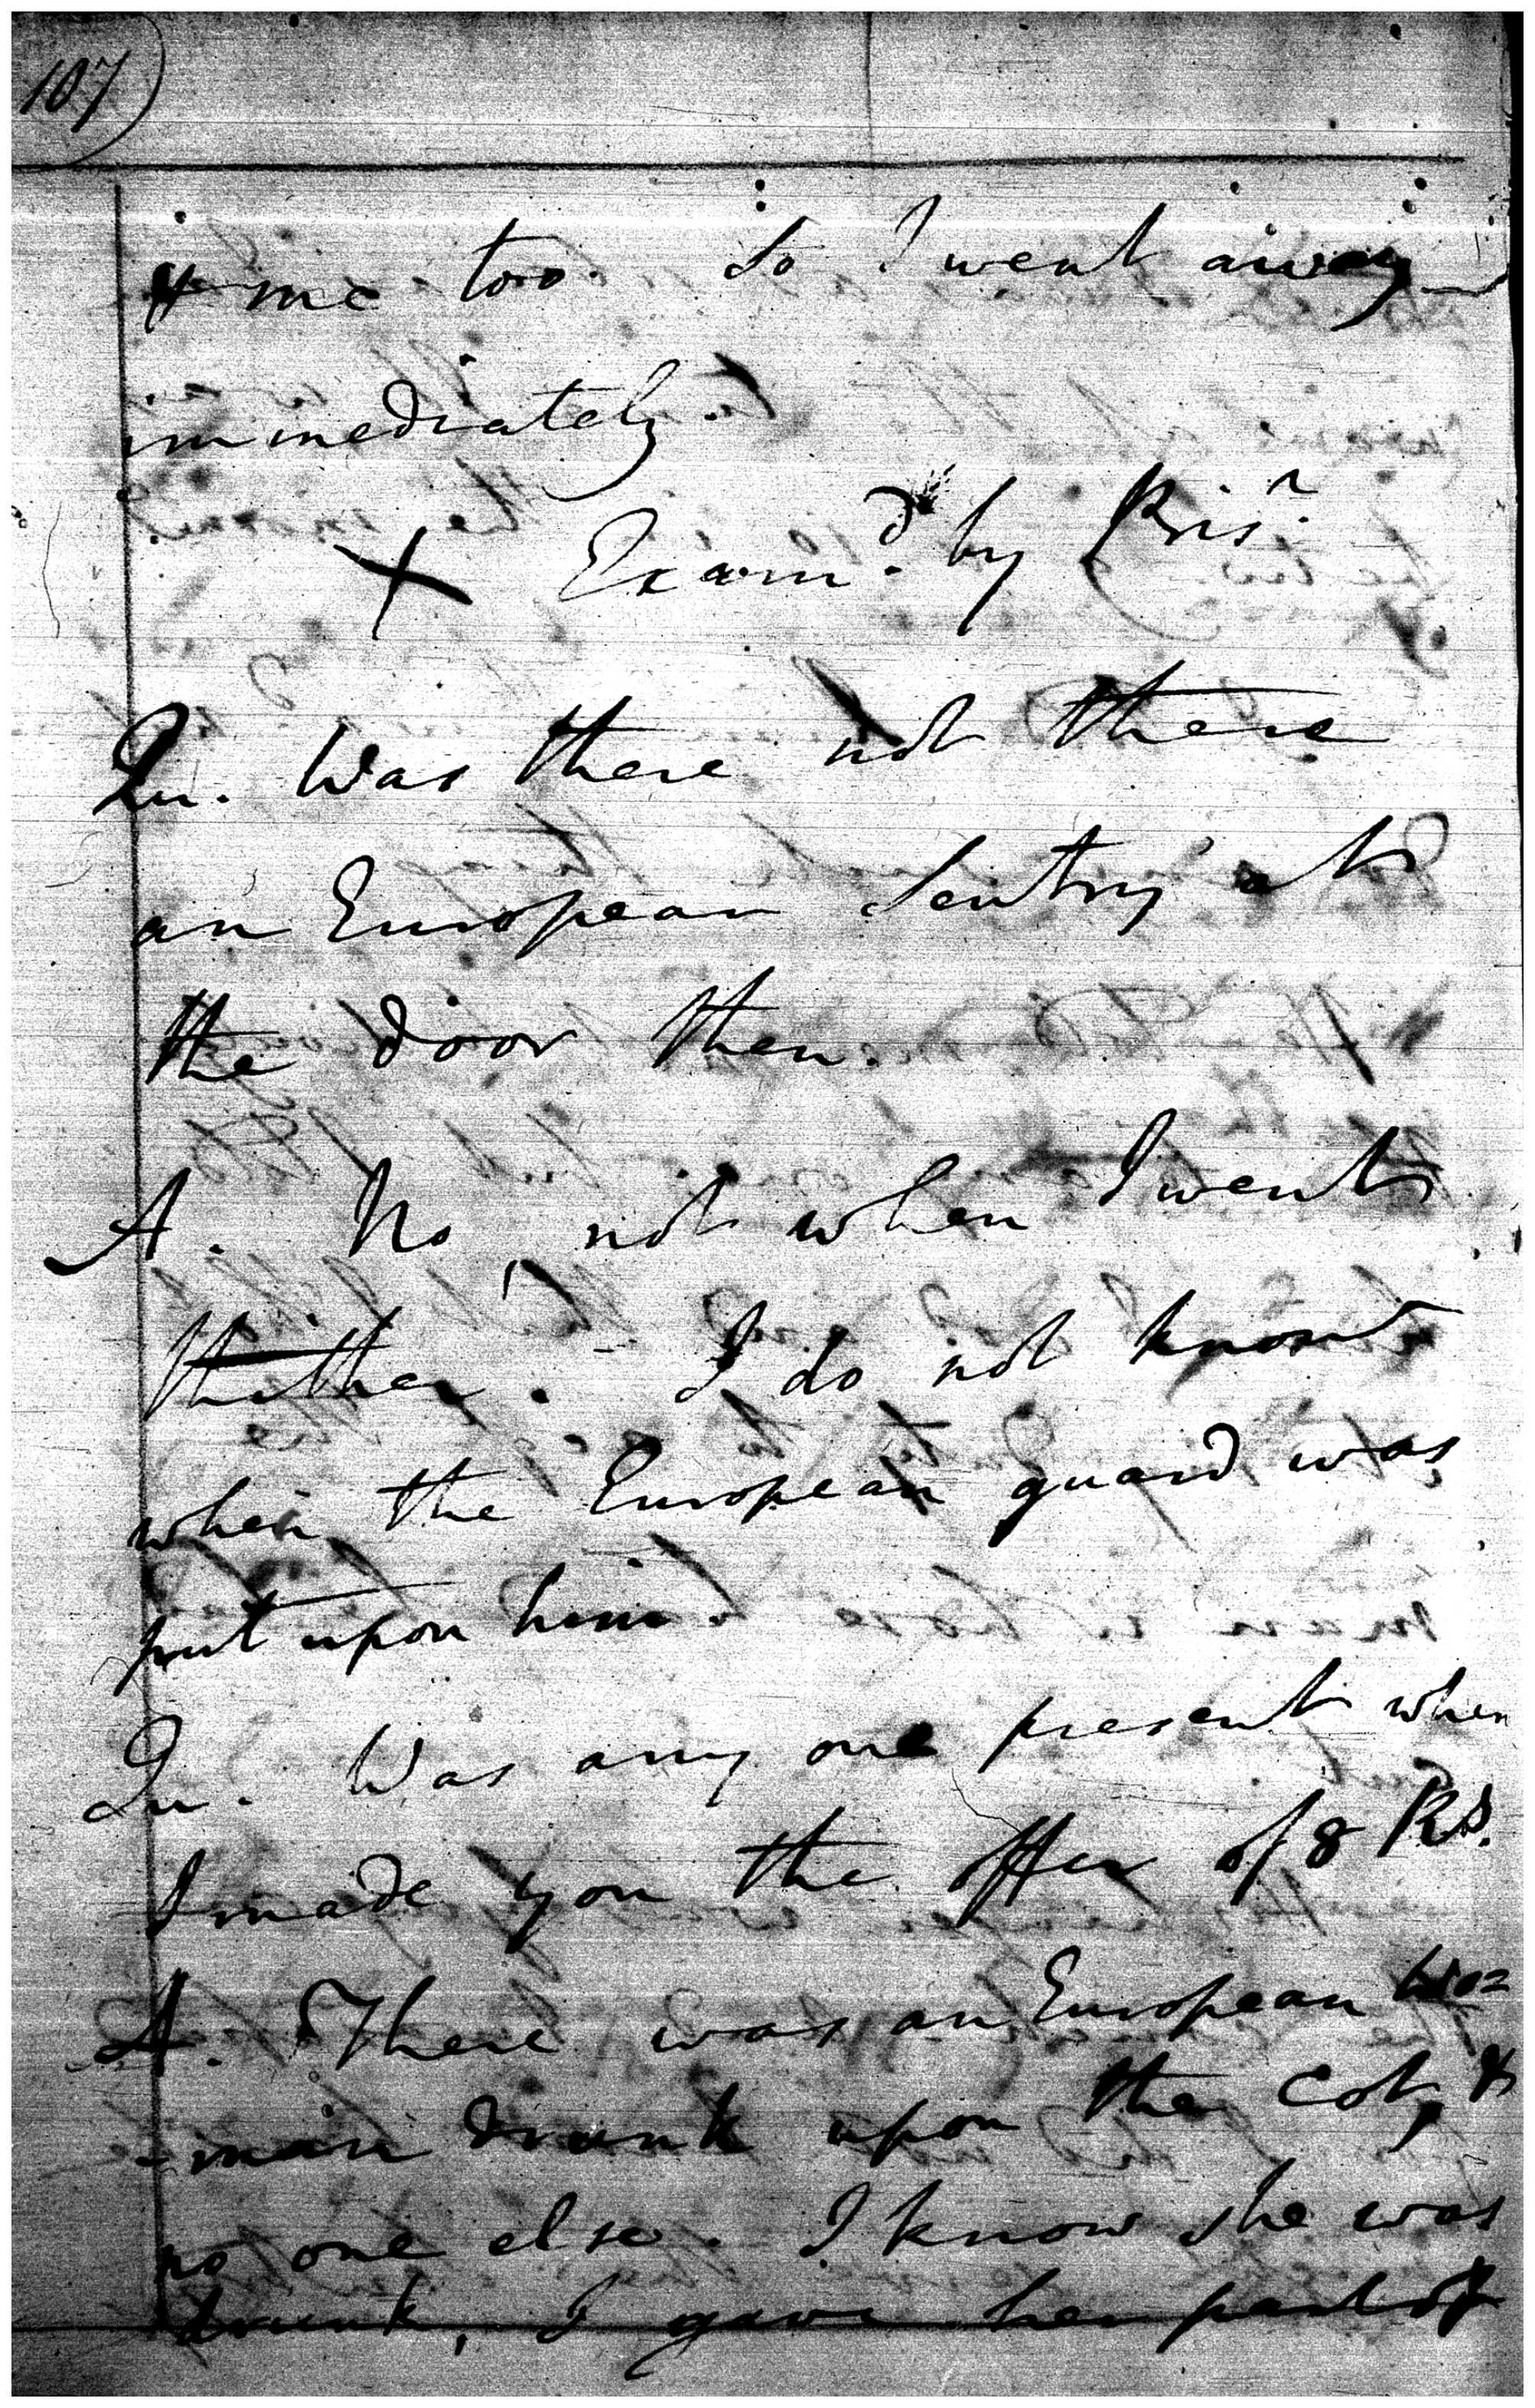 107)
& me too. So I went away
immediately.
X Exam.d by Pris.r
Qu. Was there not there
an European Sentry at
the door then.
A. No, not when I went
thither. - I do not know
when the European guard was
put upon him.
Qu. Was any one present when
I made you the offer of 8 Rs.
A. There was an European Wo=
-man drunk upon the Cot, &
no one else. I know she was
drunk, I gave her part of